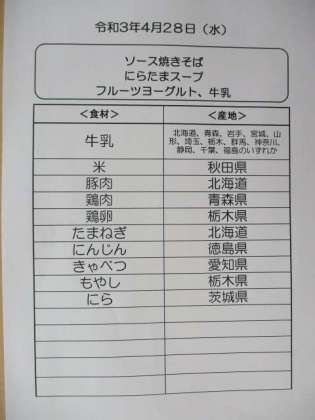 令和3年4月28日（水）
ソース焼きそば
にらたまスープ
フルーツヨーグルト、牛乳
＜食材＞ ＜産地＞
牛乳 北海道、青森、岩手、宮城、山
形、埼玉、栃木、群馬、神奈川、
静岡、千葉、福島のいずれか
米 秋田県
豚肉 北海道
鶏肉 青森県
鶏卵 栃木県
たまねぎ 北海道
にんじん 徳島県
きゃべつ 愛知県
もやし 栃木県
にら 茨城県